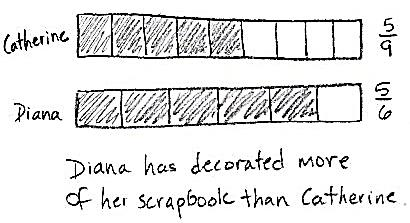 Catherine 5/9
Diana 5/6
Diana has decorated more
of her scrapbook than Catherine.